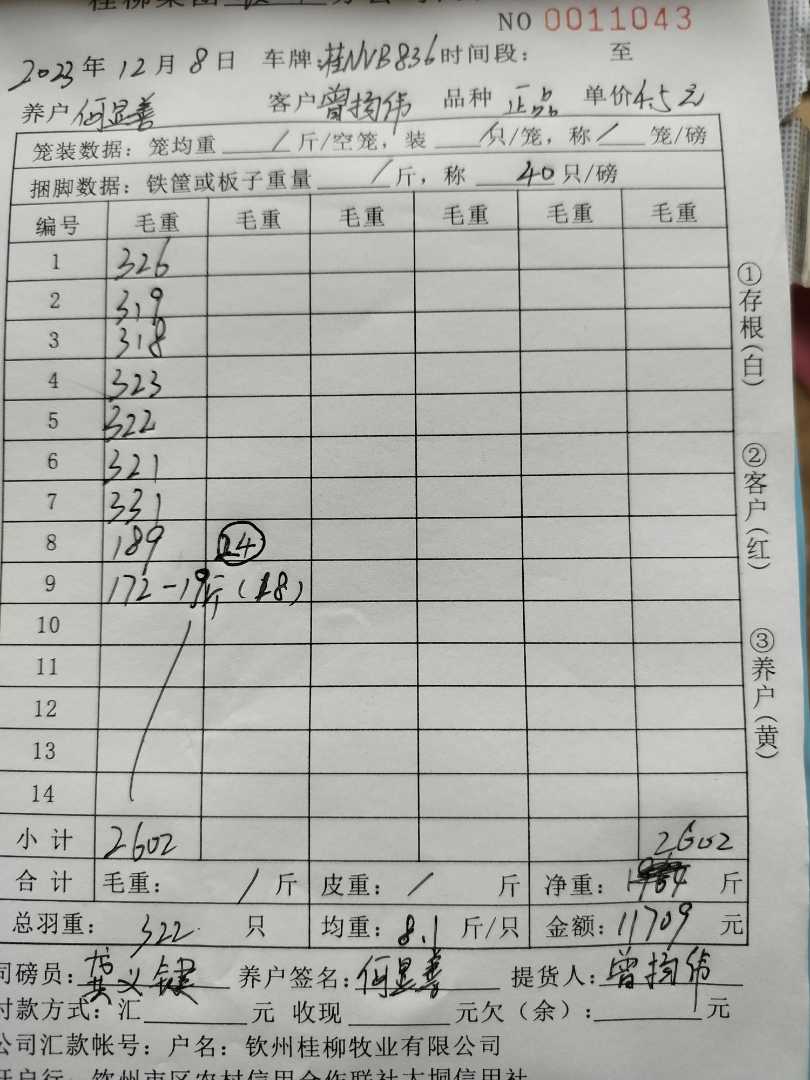 NO 0011043
2023年12月8日 车牌:桂NVB836时间段: 至
养户何显善 客户曾摘伟 品种 正品 单价4.5元
笼装数据:笼均重 / 斤/空笼,装 / 只/笼,称 / 笼/磅
捆脚数据:铁筐或板子重量 / 斤,称 40 只/磅
编号 毛重 毛重 毛重 毛重 毛重 毛重
1 326
2 319
3 318
4 323
5 322
6 321
7 331
8 189 24
9 172-19斤(18)
10
11
12
13
14
小计 2602 2602
合计 毛重: / 斤 皮重: / 斤 净重: 斤
总羽重: 322 只 均重: 8.1 斤/只 金额: 11709 元
司磅员: 义键 养户签名: 何显善 提货人: 曾摘伟
付款方式:汇 元 收现 元欠(余): 元
公司汇款帐号:户名:钦州桂柳牧业有限公司
开户行:钦州市区农村信用合作联社大垌信用社
①存根(白)
②客户(红)
③养户(黄)